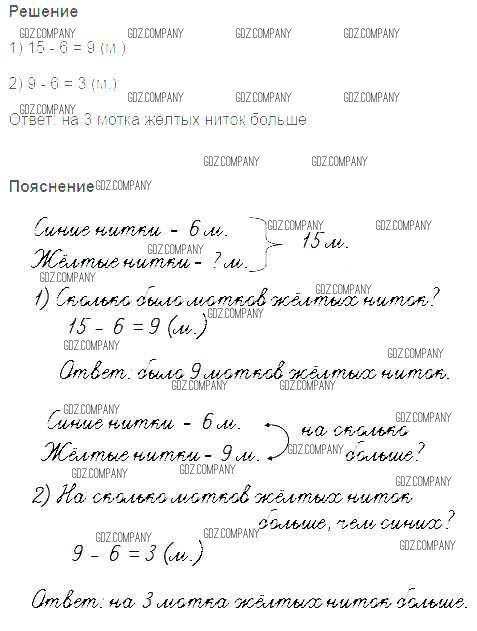 Решение
GDZ.COMPANY GDZ.COMPANY GDZ.COMPANY GDZ.COMPANY
1) 15 - 6 = 9 (м.)
2) 9 - 6 = 3 (м.)
GDZ.COMPANY GDZ.COMPANY GDZ.COMPANY
GDZ.COMPANY
Ответ: на 3 мотка жёлтых ниток больше.
GDZ.COMPANY GDZ.COMPANY
Пояснение GDZ.COMPANY
Синие нитки - 6 м.
GDZ.COMPANY GDZ.COMPANY
15 м.
GDZ.COMPANY
Жёлтые нитки - ? м.
GDZ.COMPANY
GDZ.COMPANY
1) Сколько было мотков жёлтых ниток?
GDZ.COMPANY
15 - 6 = 9 (м.)
GDZ.COMPANY
GDZ.COMPANY
Ответ: было 9 мотков жёлтых ниток.
GDZ.COMPANY GDZ.COMPANY
GDZ.COMPANY
GDZ.COMPANY
Синие нитки - 6 м.
на сколько
GDZ.COMPANY
Жёлтые нитки - 9 м.
больше?
GDZ.COMPANY GDZ.COMPANY
GDZ.COMPANY
2) На сколько мотков жёлтых ниток
больше, чем синих?
GDZ.COMPANY GDZ.COMPANY
GDZ.COMPANY
9 - 6 = 3 (м.)
Ответ: на 3 мотка жёлтых ниток больше.